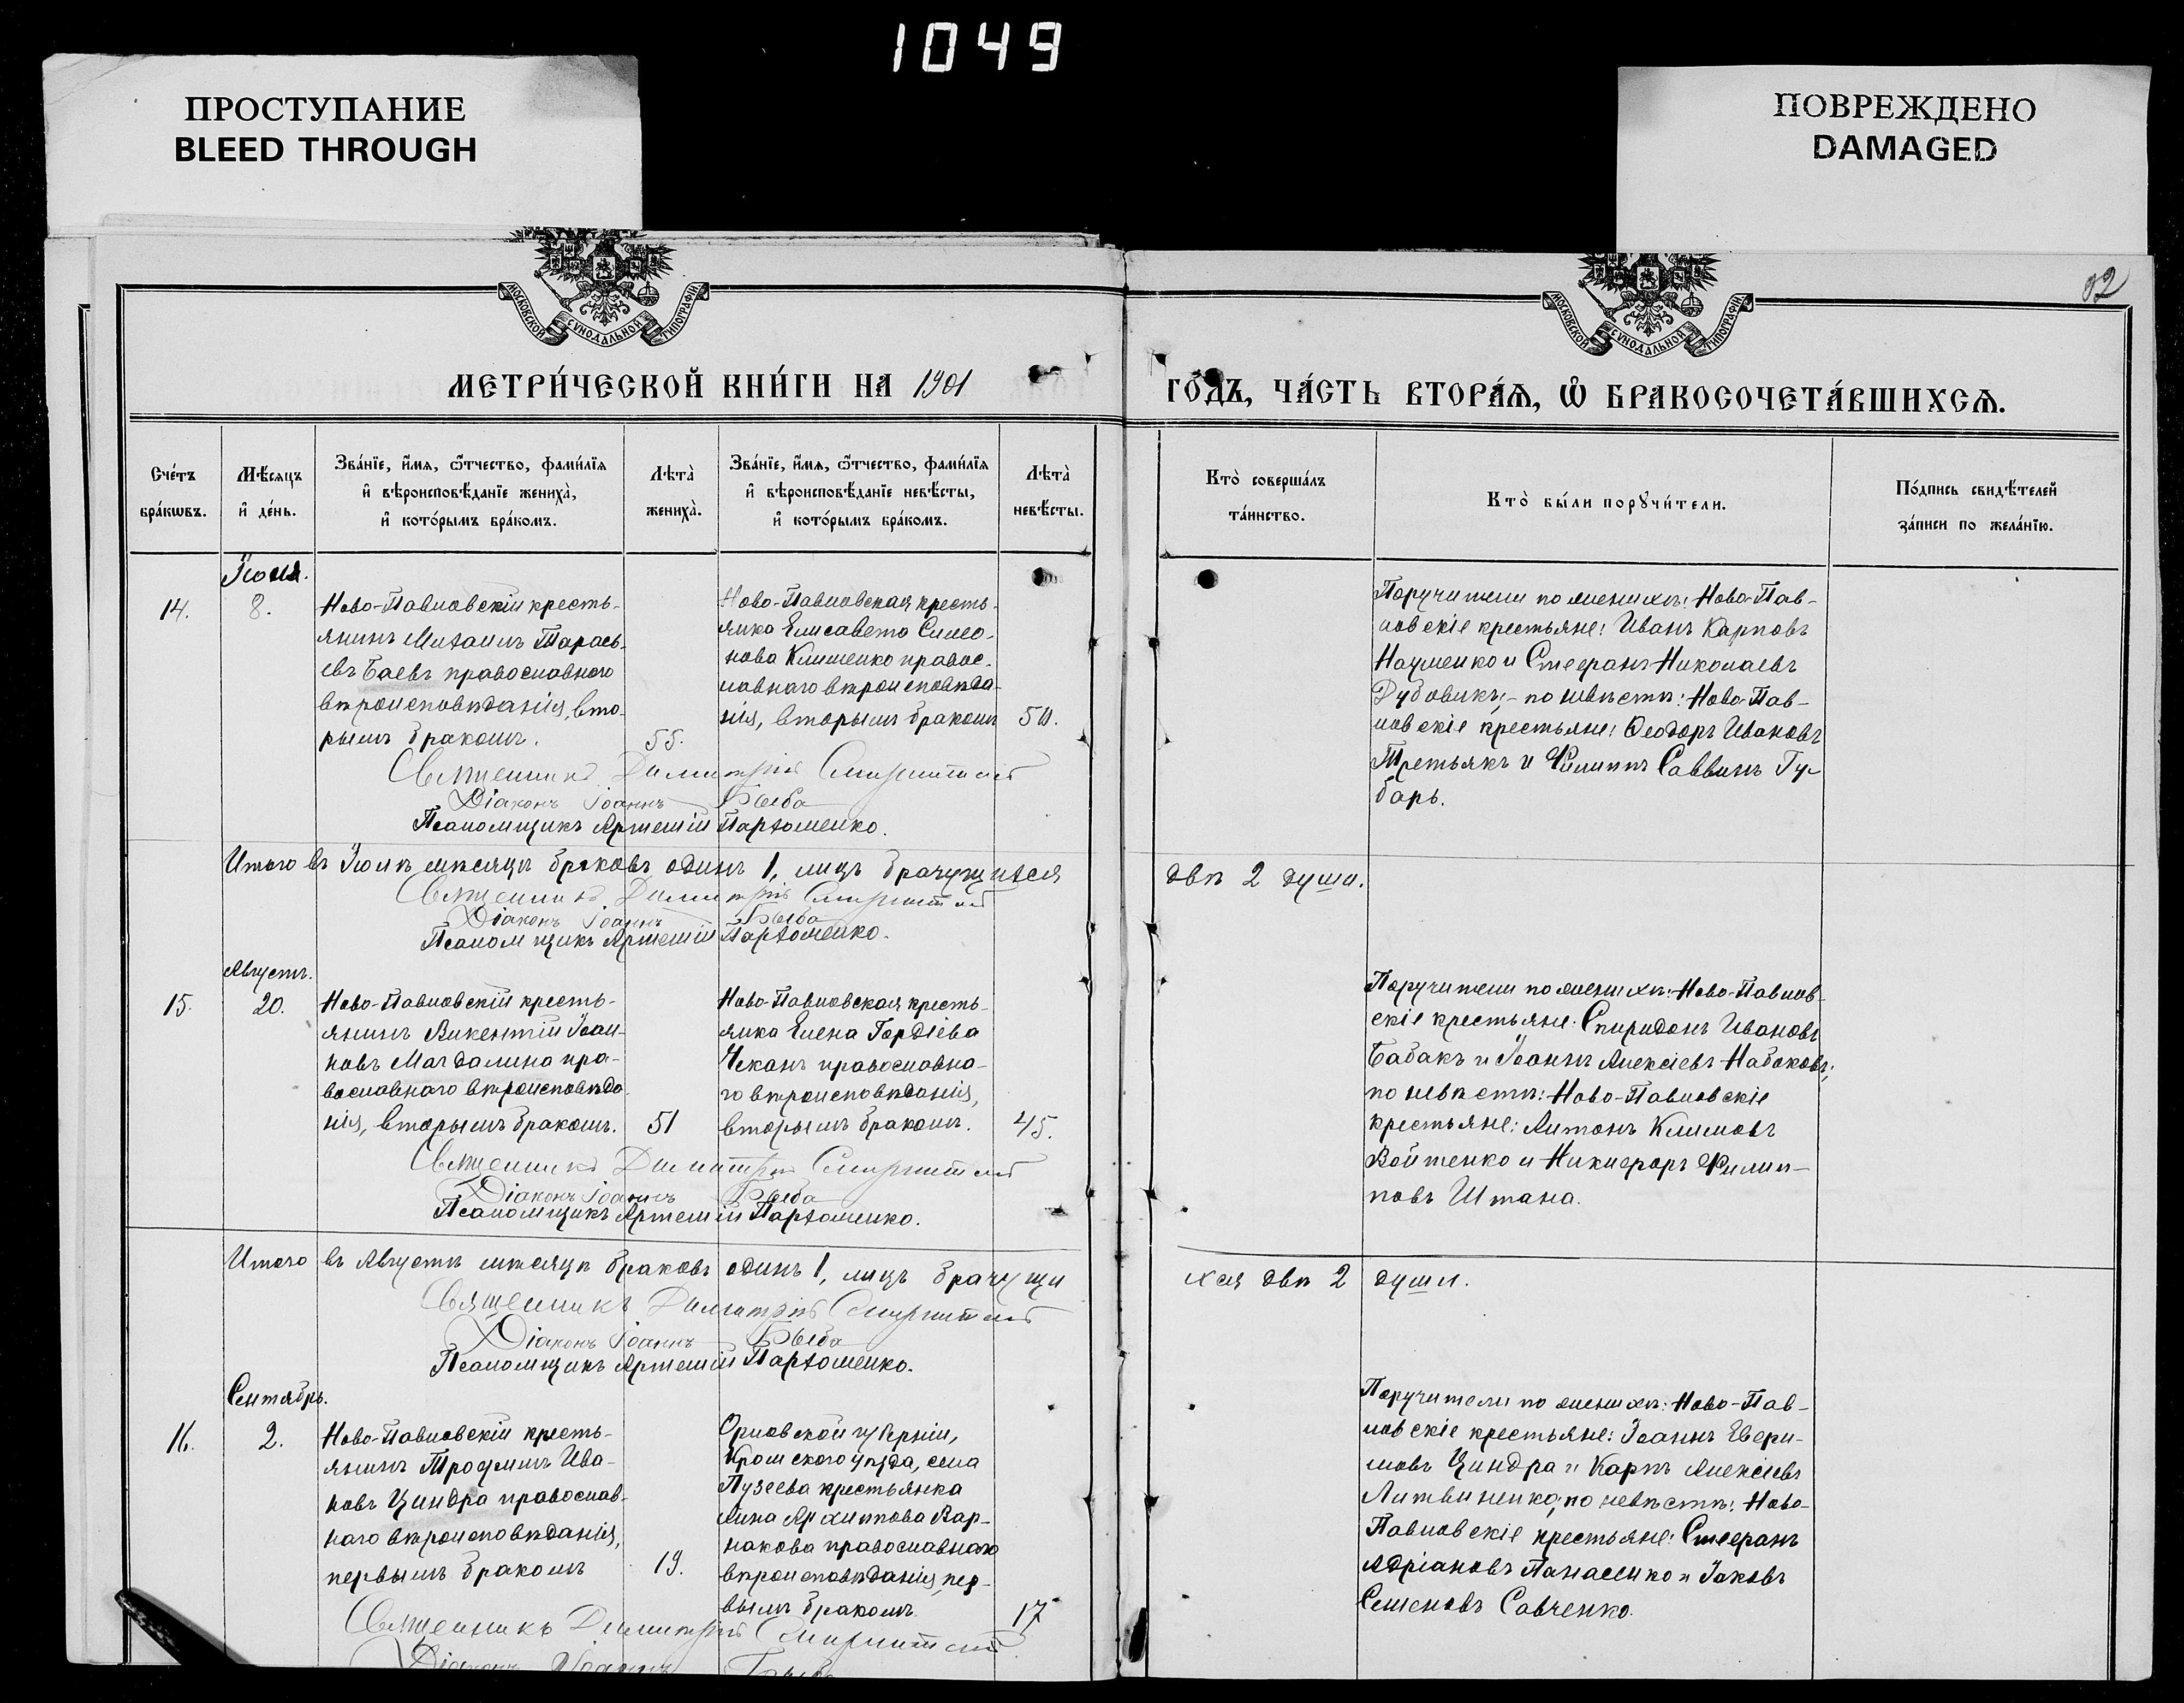 1049
ПРОСТУПАНИЕ
BLEED THROUGH
ПОВРЕЖДЕНО
DAMAGED
МОСКОВСКОЙ СѴНОДАЛЬНОЙ ТИПОГРАФІИ
МОСКОВСКОЙ СѴНОДАЛЬНОЙ ТИПОГРАФІИ
МЕТРИ́ЧЕСКОЙ КНИ́ГИ НА 1901
ГО́ДЪ, ЧА́СТЬ ВТОРА́Ѧ, Ѡ҆ БРАКОСОЧЕТА́ВШИХСѦ.
Сче́тъ
бра́кѡвъ.
Мѣ́сяцъ
и҆ де́нь.
Зва́нїе, и҆́мѧ, ѻ҆́тчество, фами́лїѧ
и҆ вѣроисповѣ́данїе жениха̀,
и҆ кото́рымъ бра́комъ.
Лѣта̀
жениха̀.
Зва́нїе, и҆́мѧ, ѻ҆́тчество, фами́лїѧ
и҆ вѣроисповѣ́данїе невѣ́сты,
и҆ кото́рымъ бра́комъ.
Лѣта̀
невѣ́сты.
Кто̀ соверша́лъ
та́инство.
Кто̀ бы́ли порꙋчи́тели.
По́дпись свидѣ́телей
за́писи по жела́нїю.
14.
8.
Ново-Павловскій кресть-
янинъ Михаилъ Тарась-
евъ Баевъ православного
вѣроисповѣданія, вто-
рымъ бракомъ.
55.
Ново-Павловская кресть-
янка Елисавета Симо-
нова Клименко правос-
лавнаго вѣроисповѣда-
нія, вторымъ бракомъ
50.
Поручители по женихѣ: Ново-Пав-
ловскіе крестьяне: Иванъ Карповъ
Науменко и Стефанъ Николаевъ
Дубовикъ; - по невѣстѣ: Ново-Пав-
ловскіе крестьяне: Ѳеодоръ Ивановъ
Третьякъ и Филиппъ Саввинъ Гу-
барь.
Священникъ Димитрій
Діаконъ Іоаннъ
Псаломщикъ Артемій Пархоменко.
Итого въ Іюлѣ мѣсяцѣ браковъ одинъ 1, лицъ брачущихся
двѣ 2 души.
Священникъ Димитрій
Діаконъ Іоаннъ
Псаломщикъ Артемій Пархоменко.
Августъ.
15.
20.
Ново-Павловскій кресть-
янинъ Викентій Іоан-
новъ Магдалина пра-
вославнаго вѣроисповѣда-
нія, вторымъ бракомъ.
51
Ново-Павловская кресть-
янка Елена Гордіева
Чеканъ православна-
го вѣроисповѣданія,
вторымъ бракомъ.
45.
Поручители по женихѣ: Ново-Павлов-
скіе крестьяне: Спиридонъ Ивановъ
Бабакъ и Іоаннъ Алексіевъ Набоковъ;
по невѣстѣ: Ново-Павловскіе
крестьяне: Антонъ Климовъ
Войтенко и Никифоръ Филип-
повъ Штана.
Священникъ Димитрій
Діаконъ Іоаннъ
Псаломщикъ Артемій Пархоменко.
Итого въ Августѣ мѣсяцѣ браковъ одинъ 1, лицъ брачущи
хся двѣ 2 души.
Священникъ Димитрій
Діаконъ Іоаннъ
Псаломщикъ Артемій Пархоменко.
Сентябрь.
16.
2.
Ново-Павловскій кресть-
янинъ Трофимъ Ива-
новъ Циндра православ-
наго вѣроисповѣданія,
первымъ бракомъ
19.
Орловской губерніи,
Кромского уѣзда, села
Пузеева крестьянка
Анна Архиппова Вар-
накова православнаго
вѣроисповѣданія, пер-
вымъ бракомъ
17
Поручители по женихѣ: Ново-Пав-
ловскіе крестьяне: Іоаннъ
Циндра и Карпъ Алексіевъ
Литвиненко; по невѣстѣ: Ново-
Павловскіе крестьяне: Стефанъ
Адріановъ Панасенко и Іаковъ
Семеновъ Савченко.
Священникъ Димитрій
Діаконъ Іоаннъ